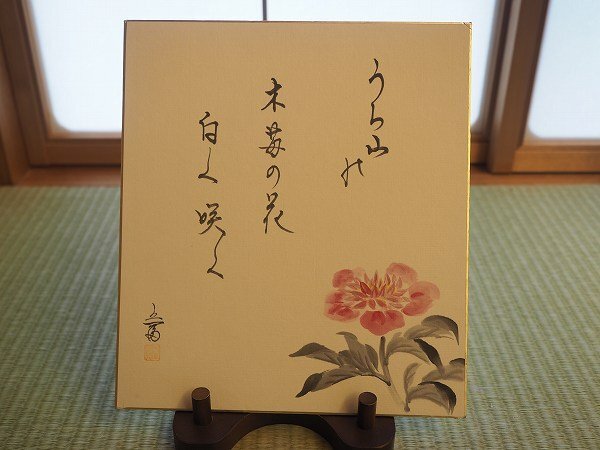 うち山の
木苺の花
白く咲く